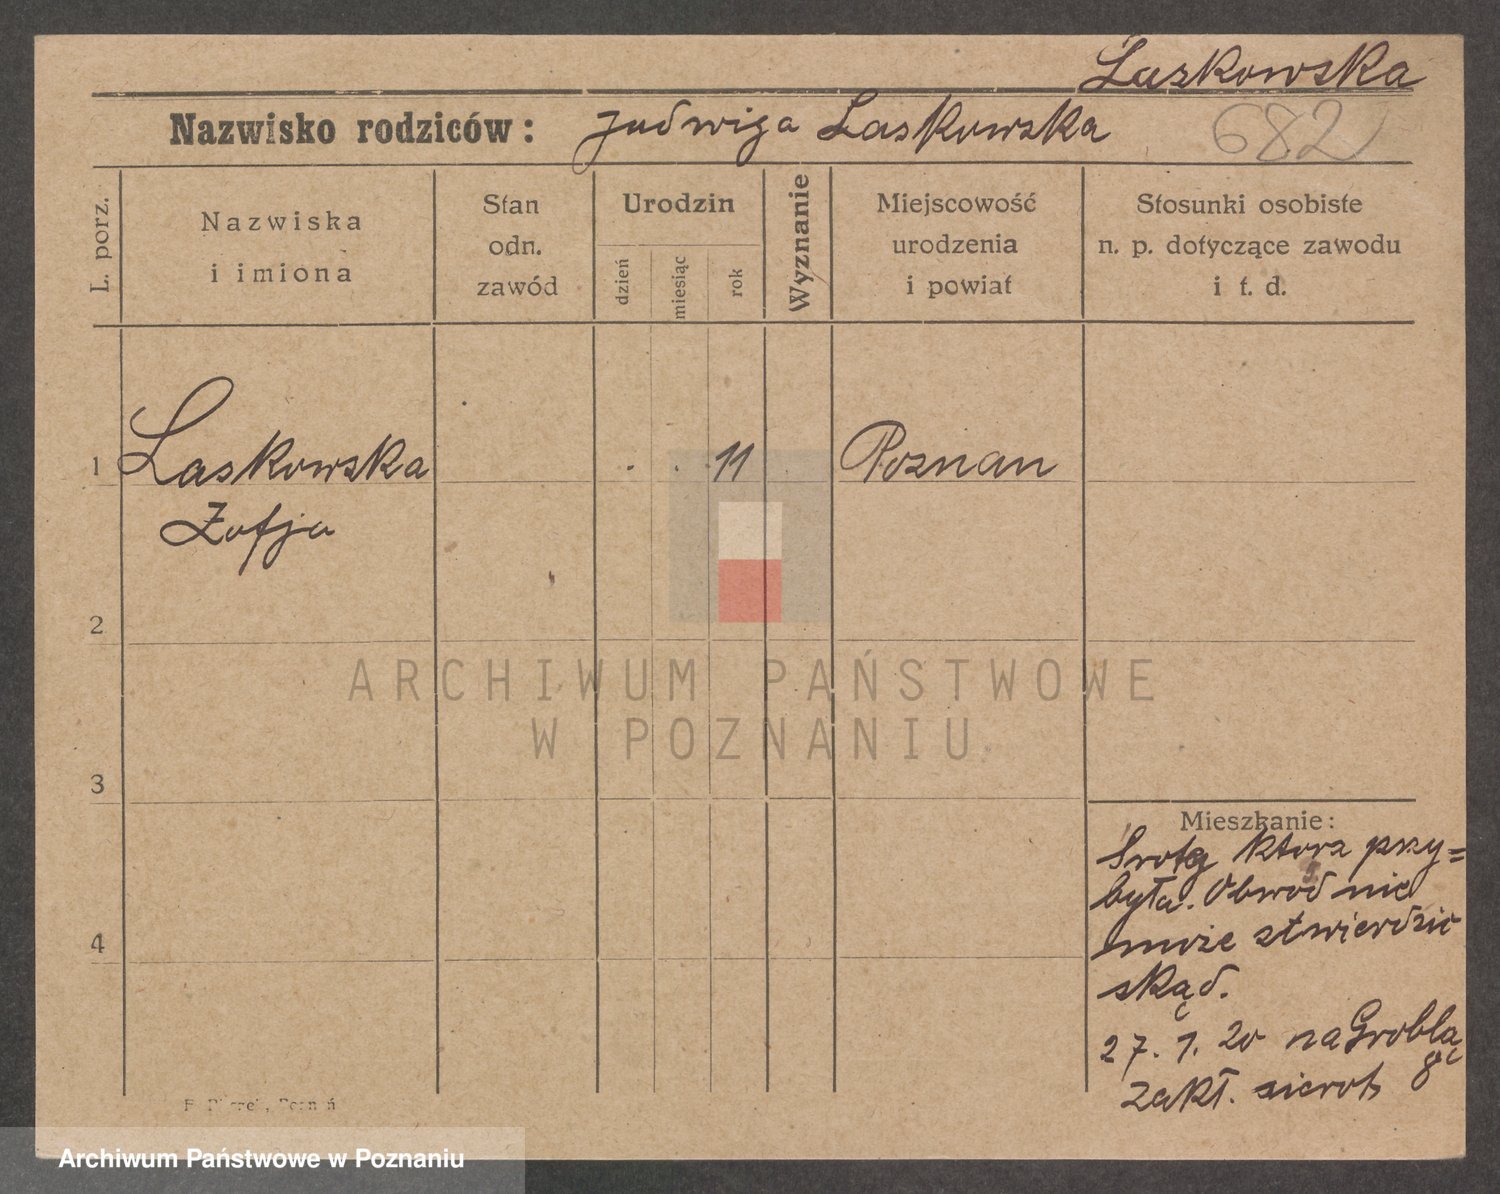 Laskowska
Nazwisko rodziców: Jadwiga Laskowska
682
L. porz.
Nazwiska
i imiona
Stan
odn.
zawód
Urodzin
dzień
miesiąc
rok
Wyznanie
Miejscowość
urodzenia
i powiat
Stosunki osobiste
n. p. dotyczące zawodu
i t. d.
1
Laskowska
. . 11
Poznan
Zofja
2
ARCHIWUM PAŃSTWOWE
W POZNANIU
3
Mieszkanie:
ktora przy=
była. Obwod nie
może stwierdzić
skąd.
4
27. 1. 20 na Groblą
zakł. sierot 8
Poznań
Archiwum Państwowe w Poznaniu